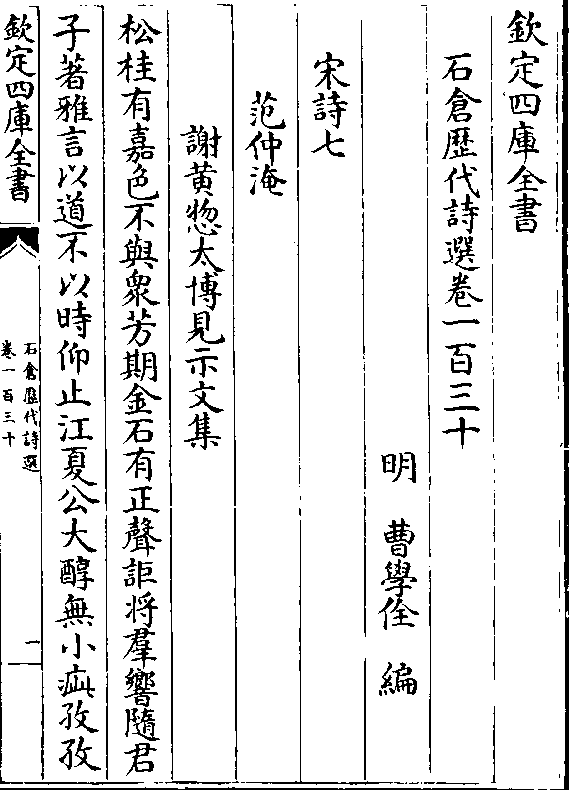 欽定四庫全書
石倉歴代詩選卷一百三十
明　曹學佺　編
宋詩七
范仲淹
謝黄惣太博見示文集
松桂有嘉色不與衆芳期金石有正聲詎将羣響隨君
子著雅言以道不以時仰止江夏公大醇無小疵孜孜
欽定四庫全書
石倉歴代詩選
卷一百三十
一